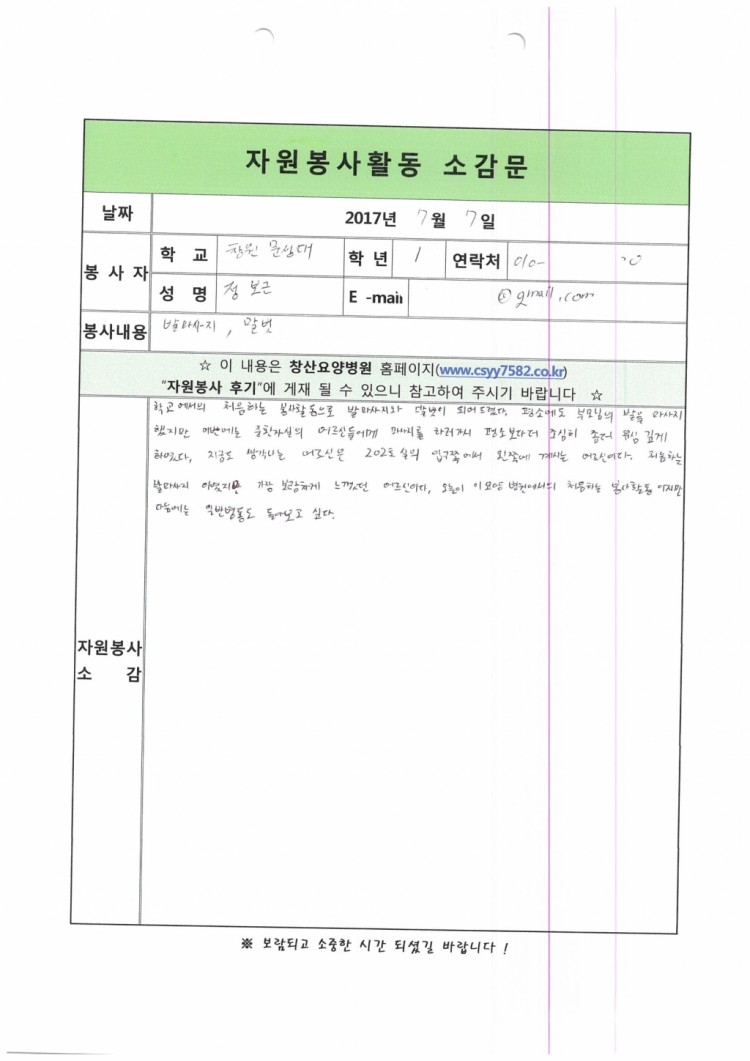 자원봉사활동 소감문
날짜 2017년 7월 7일
봉사자 학 교 창원 문성대 학년 1 연락처 010- 00
성 명 정보근 E -mail @gmail.com
봉사내용 발마사지, 말벗
☆ 이 내용은 창산요양병원 홈페이지(www.csyy7582.co.kr)
"자원봉사 후기"에 게재 될 수 있으니 참고하여 주시기 바랍니다 ☆
자원봉사
소 감
학교에서의 처음하는 봉사활동으로 발마사지와 말벗이 되어드렸다. 평소에도 부모님의 발을 마사지
했지만 이번에는 중환자실의 어르신들에게 마사지를 하러가서 평소보다더 조심히 좀더 유심 깊게
하였다. 지금도 생각나는 어르신은 202호실의 입구쪽에서 왼쪽에 계시는 어르신이다. 처음하는
발마사지 이였지만 가장 보람차게 느꼈던 어르신이다. 오늘이 이 요양 병원에서의 처음하는 봉사활동 이지만
다음에는 일반병동도 돌아보고 싶다.
※ 보람되고 소중한 시간 되셨길 바랍니다 !